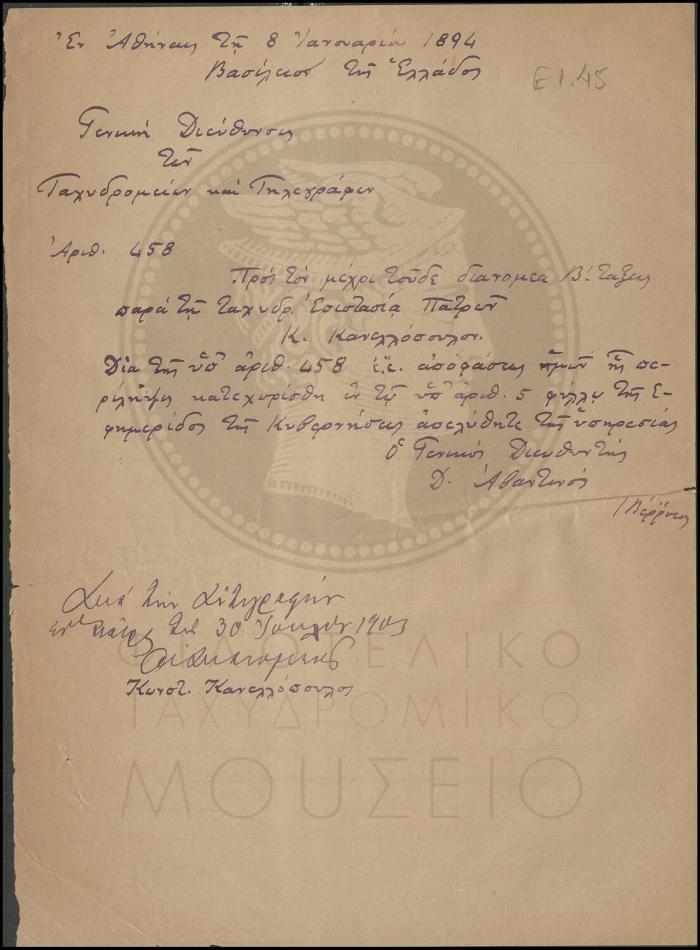 Ἐν Ἀθήναις τῇ 8 Ἰανουαρίου 1894
Βασίλειον τῆς Ἑλλάδος
E1.45
Γενική Διεύθυνσις
τῶν
Ταχυδρομείων καί Τηλεγράφων
Ἀριθ. 458
Πρός τόν μέχρι τοῦδε διανομέα Β. τάξεως
παρά τῇ ταχυδρ. Ἐπιστασίᾳ Πατρῶν
Κ. Κανελλόπουλον.
Διά τῆς ὑπ' ἀριθ. 458 ἐ.ἔ. ἀποφάσεως ἡμῶν ἧς πε-
ρίληψις κατεχωρίσθη ἐν τῷ ὑπ' ἀριθ. 5 φύλλῳ τῆς Ε-
φημερίδος τῆς Κυβερνήσεως ἀπελύθητε τῆς ὑπηρεσίας
ὁ Γενικός Διευθυντής
Δ.
διά τήν ἀντιγραφήν
ἐν Πάτραις τῇ 30 1903
Κωνστ. Κανελλόπουλος
ΦΙΛΟΤΕΛΙΚΟ
ΤΑΧΥΔΡΟΜΙΚΟ
ΜΟΥΣΕΙΟ